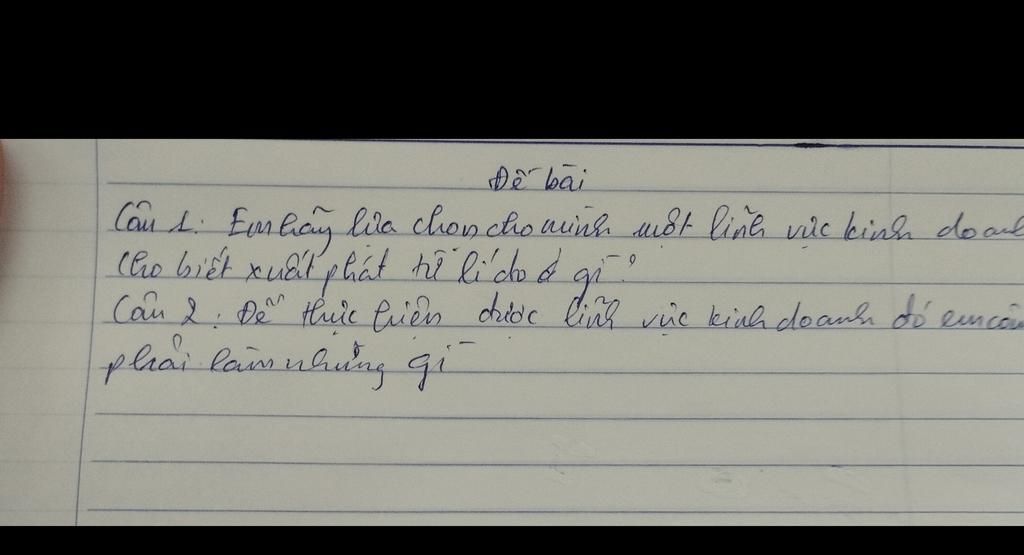 Đề bài
Câu 1: Em hãy lựa chọn cho mình một lĩnh vực kinh doanh
Cho biết xuất phát từ lí do gì?
Câu 2: Để thực hiện được lĩnh vực kinh doanh đó em cần
phải làm những gì